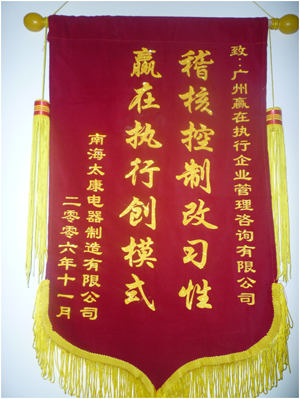 致：广州赢在执行企业管理咨询有限公司
稽核控制改习性
赢在执行创模式
南海太康电器制造有限公司
二零零六年十一月